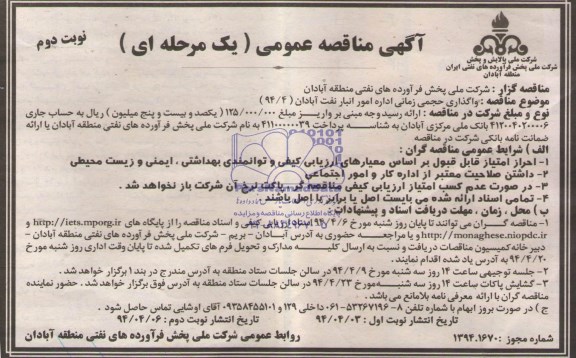 آگهی مناقصه عمومی ( یک مرحله ای )
نوبت دوم
شرکت ملی پالایش و پخش
فرآورده های نفتی ایران
شرکت ملی پخش فرآورده های نفتی ایران
منطقه آبادان
مناقصه گزار : شرکت ملی پخش فرآورده های نفتی منطقه آبادان
موضوع مناقصه : واگذاری حجمی زمانی اداره امور انبار نفت آبادان ( ۹۴/۴ )
نوع و مبلغ شرکت در مناقصه : ارائه رسید وجه مبنی بر واریز مبلغ ۱۲۵/۰۰۰/۰۰۰ ( یکصد و بیست و پنج میلیون ) ریال به حساب جاری
بانک ملی مرکزی آبادان به شناسه پرداخت به نام شرکت ملی پخش فرآورده های نفتی منطقه آبادان یا ارائه
ضمانت نامه بانکی شرکت در مناقصه
الف ) شرایط عمومی مناقصه گران :
۱- احراز امتیاز قابل قبول بر اساس معیارهای ارزیابی کیفی و توانمندی بهداشتی ، ایمنی و زیست محیطی
۲- داشتن صلاحیت معتبر از اداره کار و امور اجتماعی
۳- در صورت عدم کسب امتیاز ارزیابی کیفی مناقصه گر پاکت نرخ آن شرکت باز نخواهد شد .
۴- تمامی اسناد ارائه شده می بایست اصل یا برابر با اصل باشند
ب ) محل ، زمان ، مهلت دریافت اسناد و پیشنهادات
۱- مناقصه گران می توانند تا پایان روز شنبه مورخ ۹۴/۴/۶ اسناد ارزیابی کیفی و اسناد مناقصه را از پایگاه های http://iets.mporg.ir و
http://monaghese.niopdc.ir و یا مراجعه حضوری به آدرس آبادان - بریم - شرکت ملی پخش فرآورده های نفتی آبادان -
دبیرخانه کمیسیون مناقصات دریافت و نسبت به ارسال کلیه مدارک و تحویل فرم های تکمیل شده تا پایان وقت اداری روز شنبه مورخ
۹۴/۴/۲۰ به آدرس یاد شده اقدام نمایند.
۲- جلسه توجیهی ساعت ۱۴ روز سه شنبه مورخ ۹۴/۴/۹ در سالن جلسات ستاد منطقه به آدرس مندرج در بند ۱ برگزار خواهد شد .
۳- گشایش پاکات ساعت ۱۴ روز سه شنبه مورخ ۹۴/۴/۲۳ در سالن جلسات ستاد منطقه به آدرس فوق برگزار خواهد شد . حضور نماینده
مناقصه گران با ارائه معرفی نامه بلامانع می باشد .
ج ) در صورت بروز ابهام با شماره تلفن ۸-۰۶۱۵۳۲۶۷۱۹۶ داخلی ۱۲۹ و ۰۹۳۵۸۴۵۵۱۰۱ آقای اوشایی تماس حاصل شود .
تاریخ انتشار نوبت اول : ۹۴/۰۴/۰۳
تاریخ انتشار نوبت دوم : ۹۴/۰۴/۰۶
شماره مجوز : ۱۳۹۴.۱۶۷۰
روابط عمومی شرکت ملی پخش فرآورده های نفتی منطقه آبادان